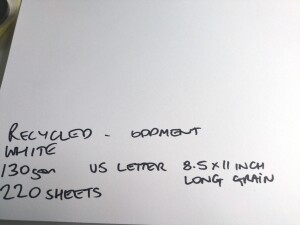 RECYCLED - ODDMENT
WHITE
130gsm US LETTER 8.5 X 11 INCH
LONG GRAIN
220 SHEETS